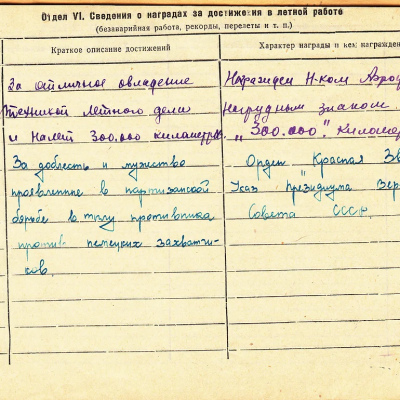 Отдел VI. Сведения о наградах за достижения в летной работе
(безаварийная работа, рекорды, перелеты и т. п.)
Краткое описание достижений
Характер награды и кем награжден
За отличное овладение
техникой летного дела
и налет 300.000 километров.
За доблесть и мужество
проявленные в партизанской
борьбе в тылу противника
против немецких захватчи-
ков.
Награжден Н-ком Аэро
нагрудным знаком
„300.000" километ
Орден "Красная Зв
Указ Президиума Вер
Совета СССР.